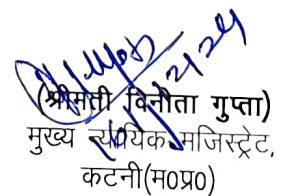 (श्रीमती विनीता गुप्ता)
मुख्य न्यायिक मजिस्ट्रेट,
कटनी(म0प्र0)